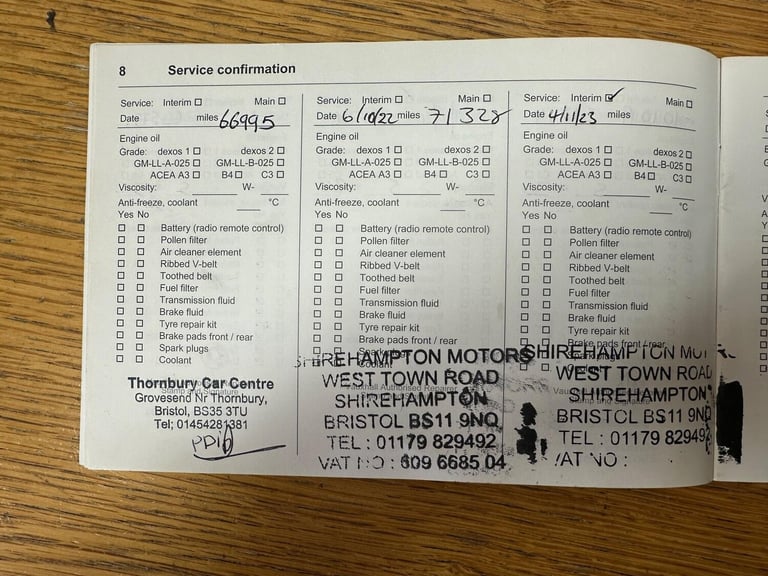 8 Service confirmation
Service: Interim ☐ Main ☐
Date miles 66995
Engine oil
Grade: dexos 1 ☐ dexos 2 ☐
GM-LL-A-025 ☐ GM-LL-B-025 ☐
ACEA A3 ☐ B4 ☐ C3 ☐
Viscosity: W-
Anti-freeze, coolant °C
Yes No
☐ ☐ Battery (radio remote control)
☐ ☐ Pollen filter
☐ ☐ Air cleaner element
☐ ☐ Ribbed V-belt
☐ ☐ Toothed belt
☐ ☐ Fuel filter
☐ ☐ Transmission fluid
☐ ☐ Brake fluid
☐ ☐ Tyre repair kit
☐ ☐ Brake pads front / rear
☐ ☐ Spark plugs
☐ ☐ Coolant
Thornbury Car Centre
Grovesend Nr Thornbury,
Bristol, BS35 3TU
Tel; 01454281381
Service: Interim ☐ Main ☐
Date 6/10/22 miles 71328
Engine oil
Grade: dexos 1 ☐ dexos 2 ☐
GM-LL-A-025 ☐ GM-LL-B-025 ☐
ACEA A3 ☐ B4 ☐ C3 ☐
Viscosity: W-
Anti-freeze, coolant °C
Yes No
☐ ☐ Battery (radio remote control)
☐ ☐ Pollen filter
☐ ☐ Air cleaner element
☐ ☐ Ribbed V-belt
☐ ☐ Toothed belt
☐ ☐ Fuel filter
☐ ☐ Transmission fluid
☐ ☐ Brake fluid
☐ ☐ Tyre repair kit
☐ ☐ Brake pads front / rear
SHIREHAMPTON MOTORS
Coolant
WEST TOWN ROAD
Vauxhall Authorised Repairer
SHIREHAMPTON
BRISTOL BS11 9NQ
TEL : 01179 829492
VAT NO : 609 6685 04
Service: Interim ☑ Main ☐
Date 4/11/23 miles
Engine oil
Grade: dexos 1 ☐ dexos 2 ☐
GM-LL-A-025 ☐ GM-LL-B-025 ☐
ACEA A3 ☐ B4 ☐ C3 ☐
Viscosity: W-
Anti-freeze, coolant °C
Yes No
☐ ☐ Battery (radio remote control)
☐ ☐ Pollen filter
☐ ☐ Air cleaner element
☐ ☐ Ribbed V-belt
☐ ☐ Toothed belt
☐ ☐ Fuel filter
☐ ☐ Transmission fluid
☐ ☐ Brake fluid
☐ ☐ Tyre repair kit
☐ ☐ Brake pads front / rear
SHIREHAMPTON
WEST TOWN ROAD
SHIREHAMPTON
BRISTOL BS11 9NQ
TEL : 01179 829492
VAT NO :